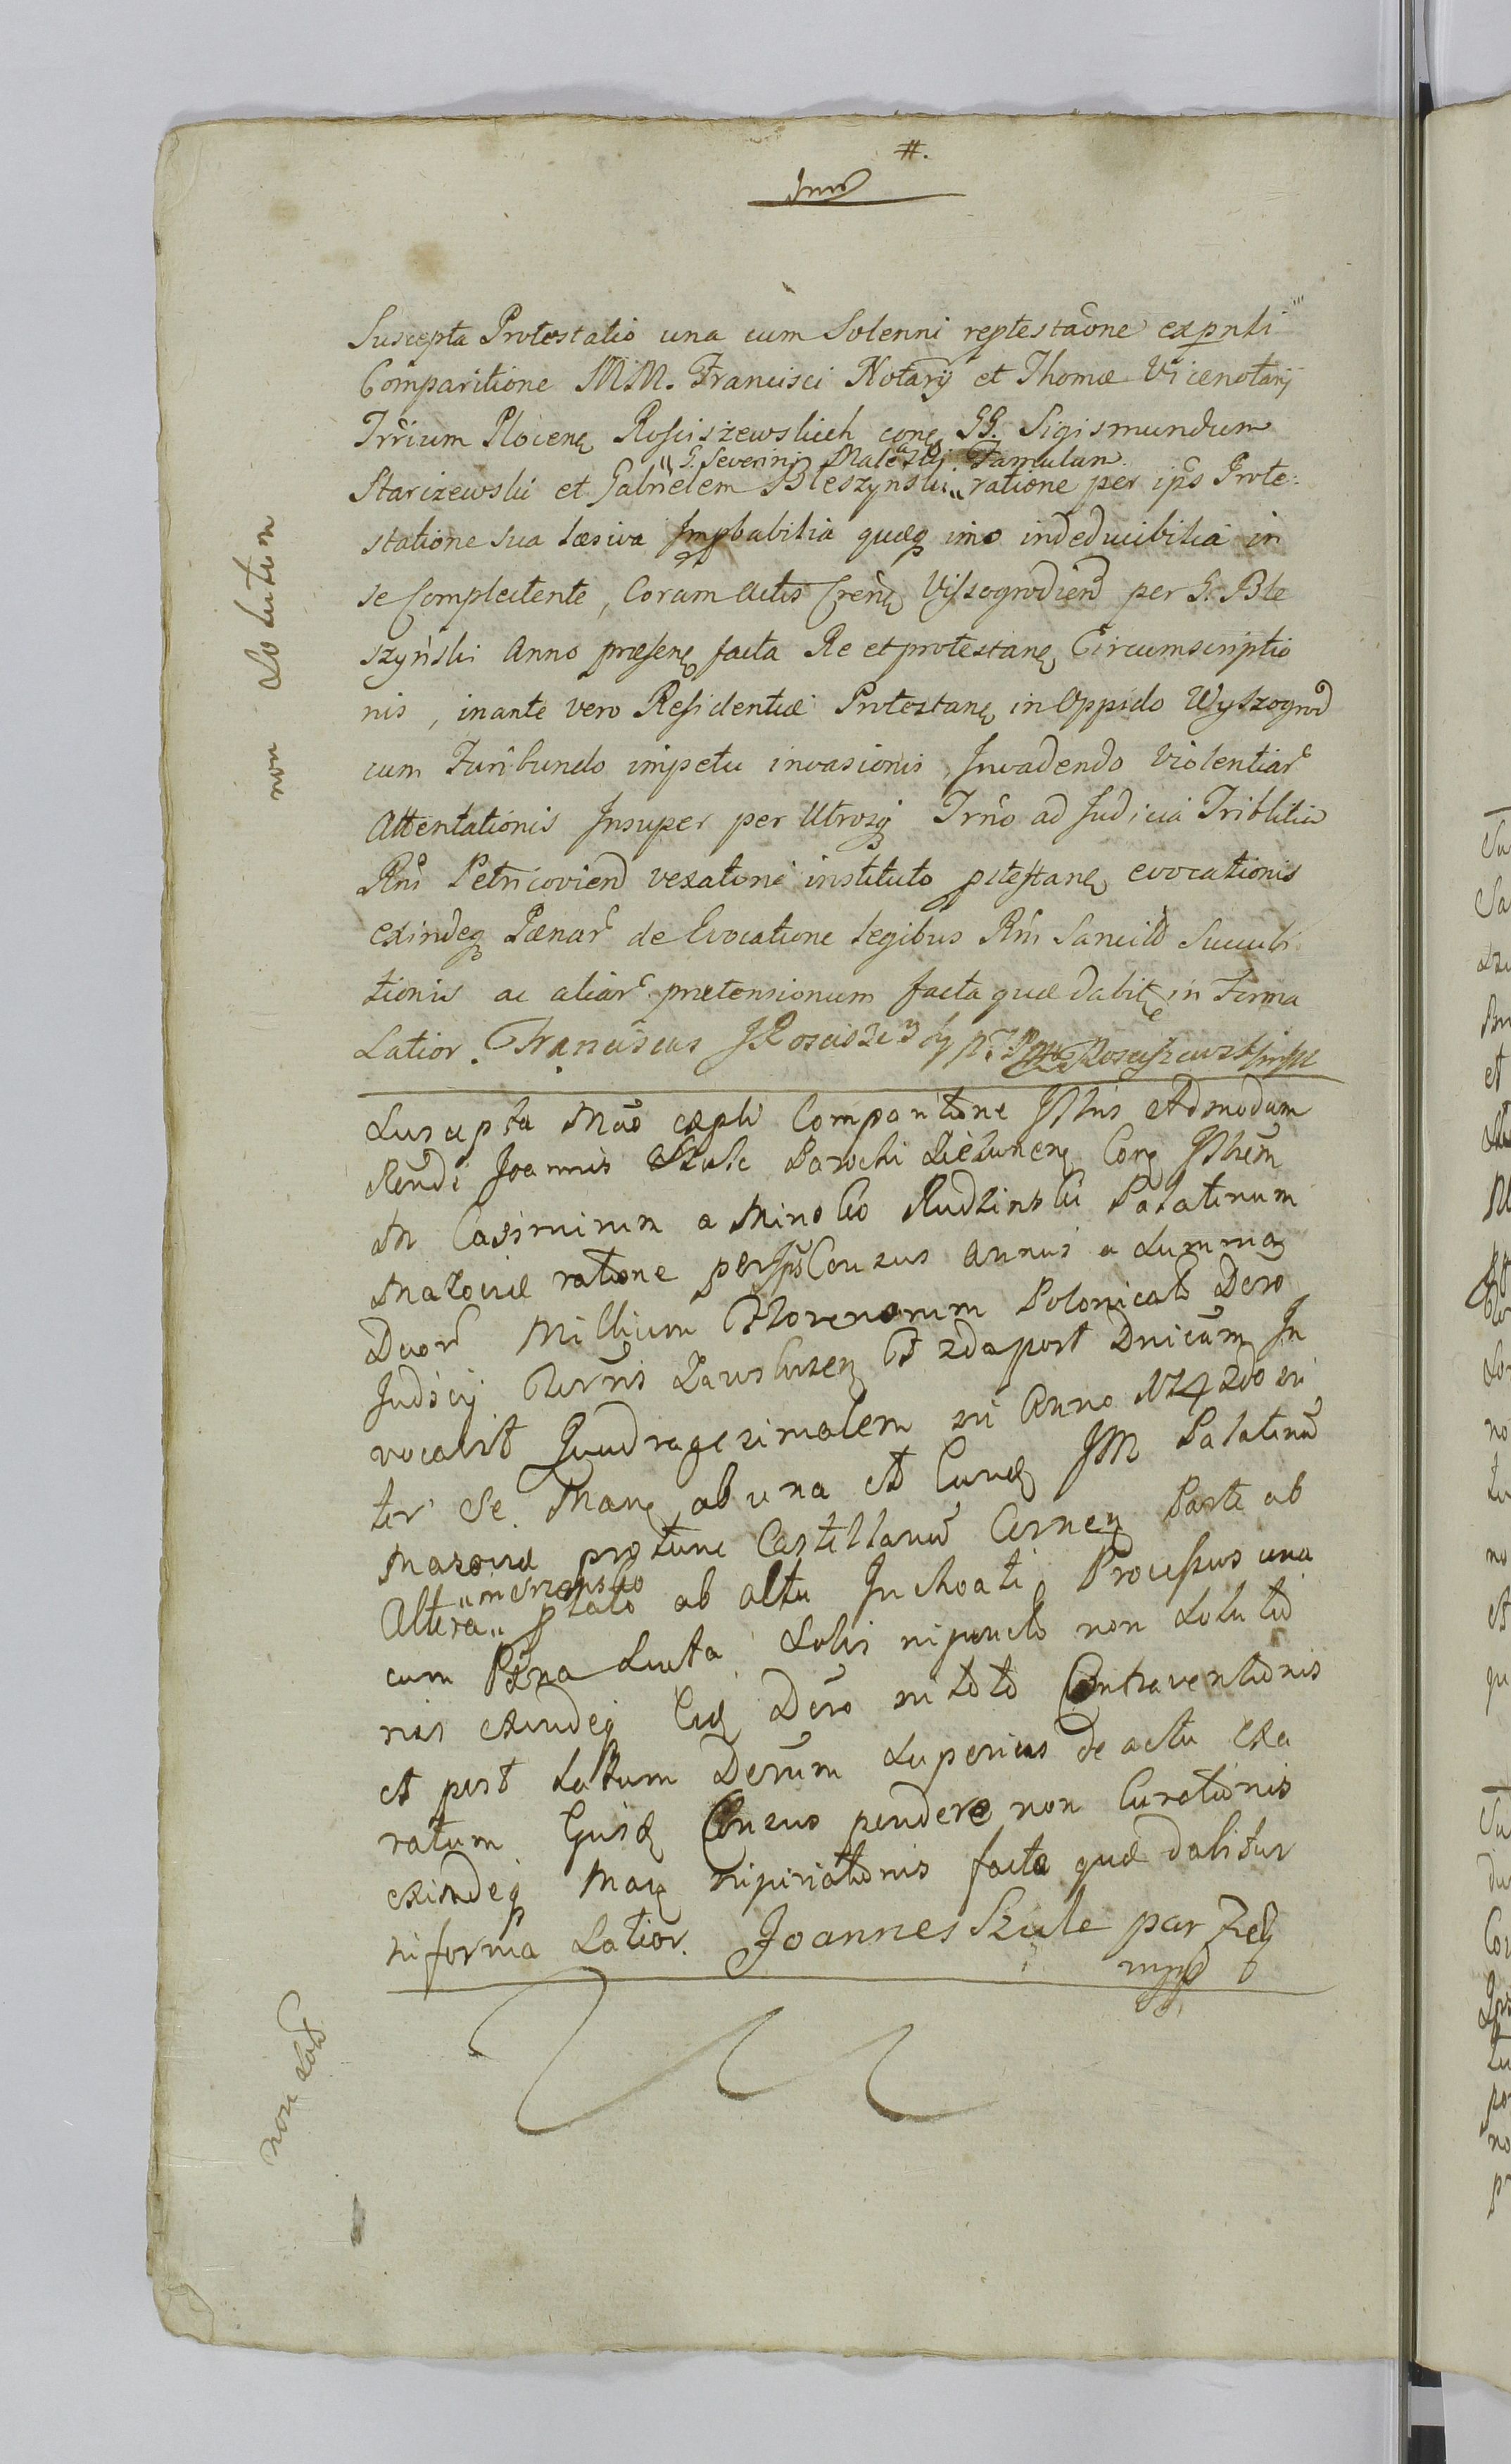 #.
Suscepta Protestatio una cum Solenni reptestaone expnti
Comparitione MM. Francisci Notarij et Thomæ Vicenotarij
Trrium Plocen Rosciszewskich con GG. Sigismundum
"G. Severini Maleski Famulum
Starczewski et Gabrielem Bleszynski" ratione per ips Prote:
statione sua læsiva Impbabilia quæq imo indeducibilia in
se Complectente, Coram Actis Cren Vissogrodien per G. Ble
szyński Anno præsen facta Re et protestan Circumscriptio
nis, in ante vero Residentiæ Protestan in Oppido Wyszogrod
cum Furibundo impetu invasionis, Invadendo Violentiar
Attentationis Insuper per Utrosq Trno ad Judicia Tribltia
Rni Petricovien vexatone instituto ptestan evocationis
exindeq Pænar de Evocatione legibus Rni Sancito Succubi
tionis ac aliar prætensionum facta quæ dabit in Forma
Latior. Franciscus Rosciszewski Rosciszewski mpp
Suscepta Mao expti Comparitone Illris Admodum
Rendi Joannis Szulc Parochi Zielunen Con Illrem
M Casimirum a Minsko Rudzinski Palatinum
Mazoviæ ratione per Ips Census annui a Summa
Duor Millium Florenorum Polonical Dero
Judicij Terris Zawskrzen F 2da post Dnicam In
vocavit Quadragesimalem in Anno 1742do in
ter Se Man ab una et Eund JM Palatinu
Mazoviæ protunc Castellanu Cernen Parte ab
Altera " ab Actu Inchoati Processus una
cum Pæna Lucta Solis in puncto non Soluto
nis exindeq Eid Dero in toto Contraventionis
et post latum Derum Superius de actu exa
ratum Eiusd Census pendere non Curationis
exindeq Man injuriationis facta quæ dabitur
in forma Latior. Joannes Szulc par Ziel
mpp
non solutum
non solut